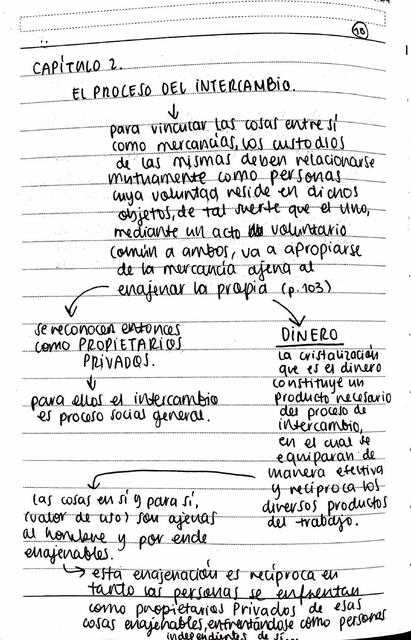 10
CAPÍTULO 2.
EL PROCESO DEL INTERCAMBIO.
para vincular las cosas entre sí
como mercancías, los custodios
de las mismas deben relacionarse
mutuamente como personas
cuya voluntad reside en dichos
objetos, de tal suerte que el uno,
mediante un acto voluntario
común a ambos, va a apropiarse
de la mercancía ajena al
enajenar la propia (p.103)
se reconocen entonces
como PROPIETARIOS
PRIVADOS.
para ellos el intercambio
es proceso social general.
DINERO
la cristalización
que es el dinero
constituye un
producto necesario
del proceso de
intercambio,
en el cual se
equiparan de
manera efectiva
y recíproca los
diversos productos
del trabajo.
las cosas en sí y para sí,
(valor de uso) son ajenas
al hombre y por ende
enajenables.
esta enajenación es recíproca en
tanto las personas se enfrentan
como propietarios privados de esas
cosas enajenables, enfrentándose como personas
independientes de sí...